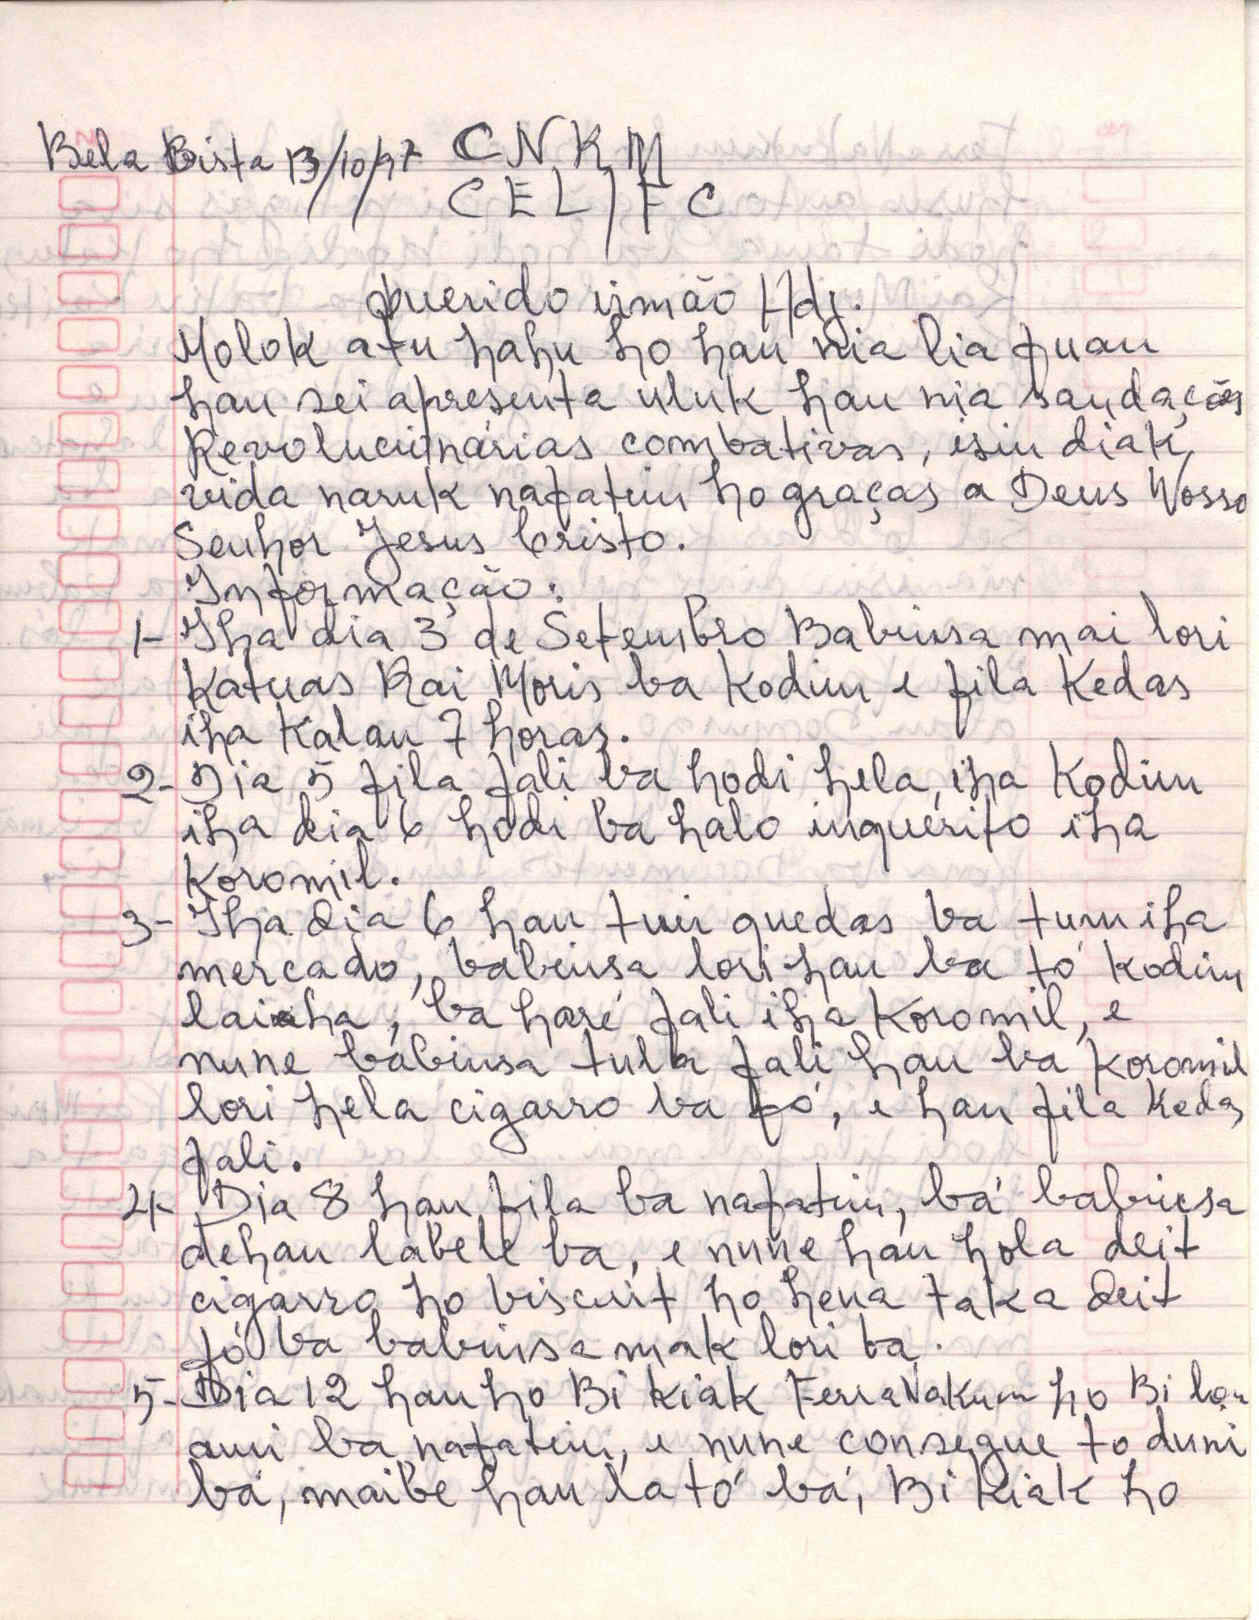 Bela Bista 13/10/97 CNRM
CEL/FC
Querido irmão Ady.
Molok atu hahu ho hau nia lia fuan
hau sei apresenta uluk hau nia saudações
Revolucionárias combativas, isin diak,
vida naruk nafatin ho graças a Deus Nosso
Senhor Jesus Cristo.
Informação:
1- Iha dia 3 de Setembro Babinsa mai lori
Katuas Rai Moris ba Kodim e fila Kedas
iha Kalan 7 horas.
2- Dia 5 fila fali ba hodi hela, iha Kodim
iha dia 6 hodi ba halo inquerito iha
Koromil.
3- Iha dia 6 hau tuir quedas ba tun iha
mercado, babinsa lori hau ba tó kodim
laiaha, ba haré fali iha Koromil, e
nune babinsa tula fali hau ba Koromil
lori hela cigarro ba fó, e hau fila Kedas
fali.
4- Dia 8 hau fila ba nafatin, bá babinsa
dehan labele ba, e nune hau hola deit
cigarro ho biscuit ho hena taka deit
fó ba babinsa mak lori ba.
5- Dia 12 hau ho Bi Kiak FerraNakum ho Bi
ami ba nafatin, e nune consegue to duni
bá, maibe hau la tó bá, Bi Kiak ho